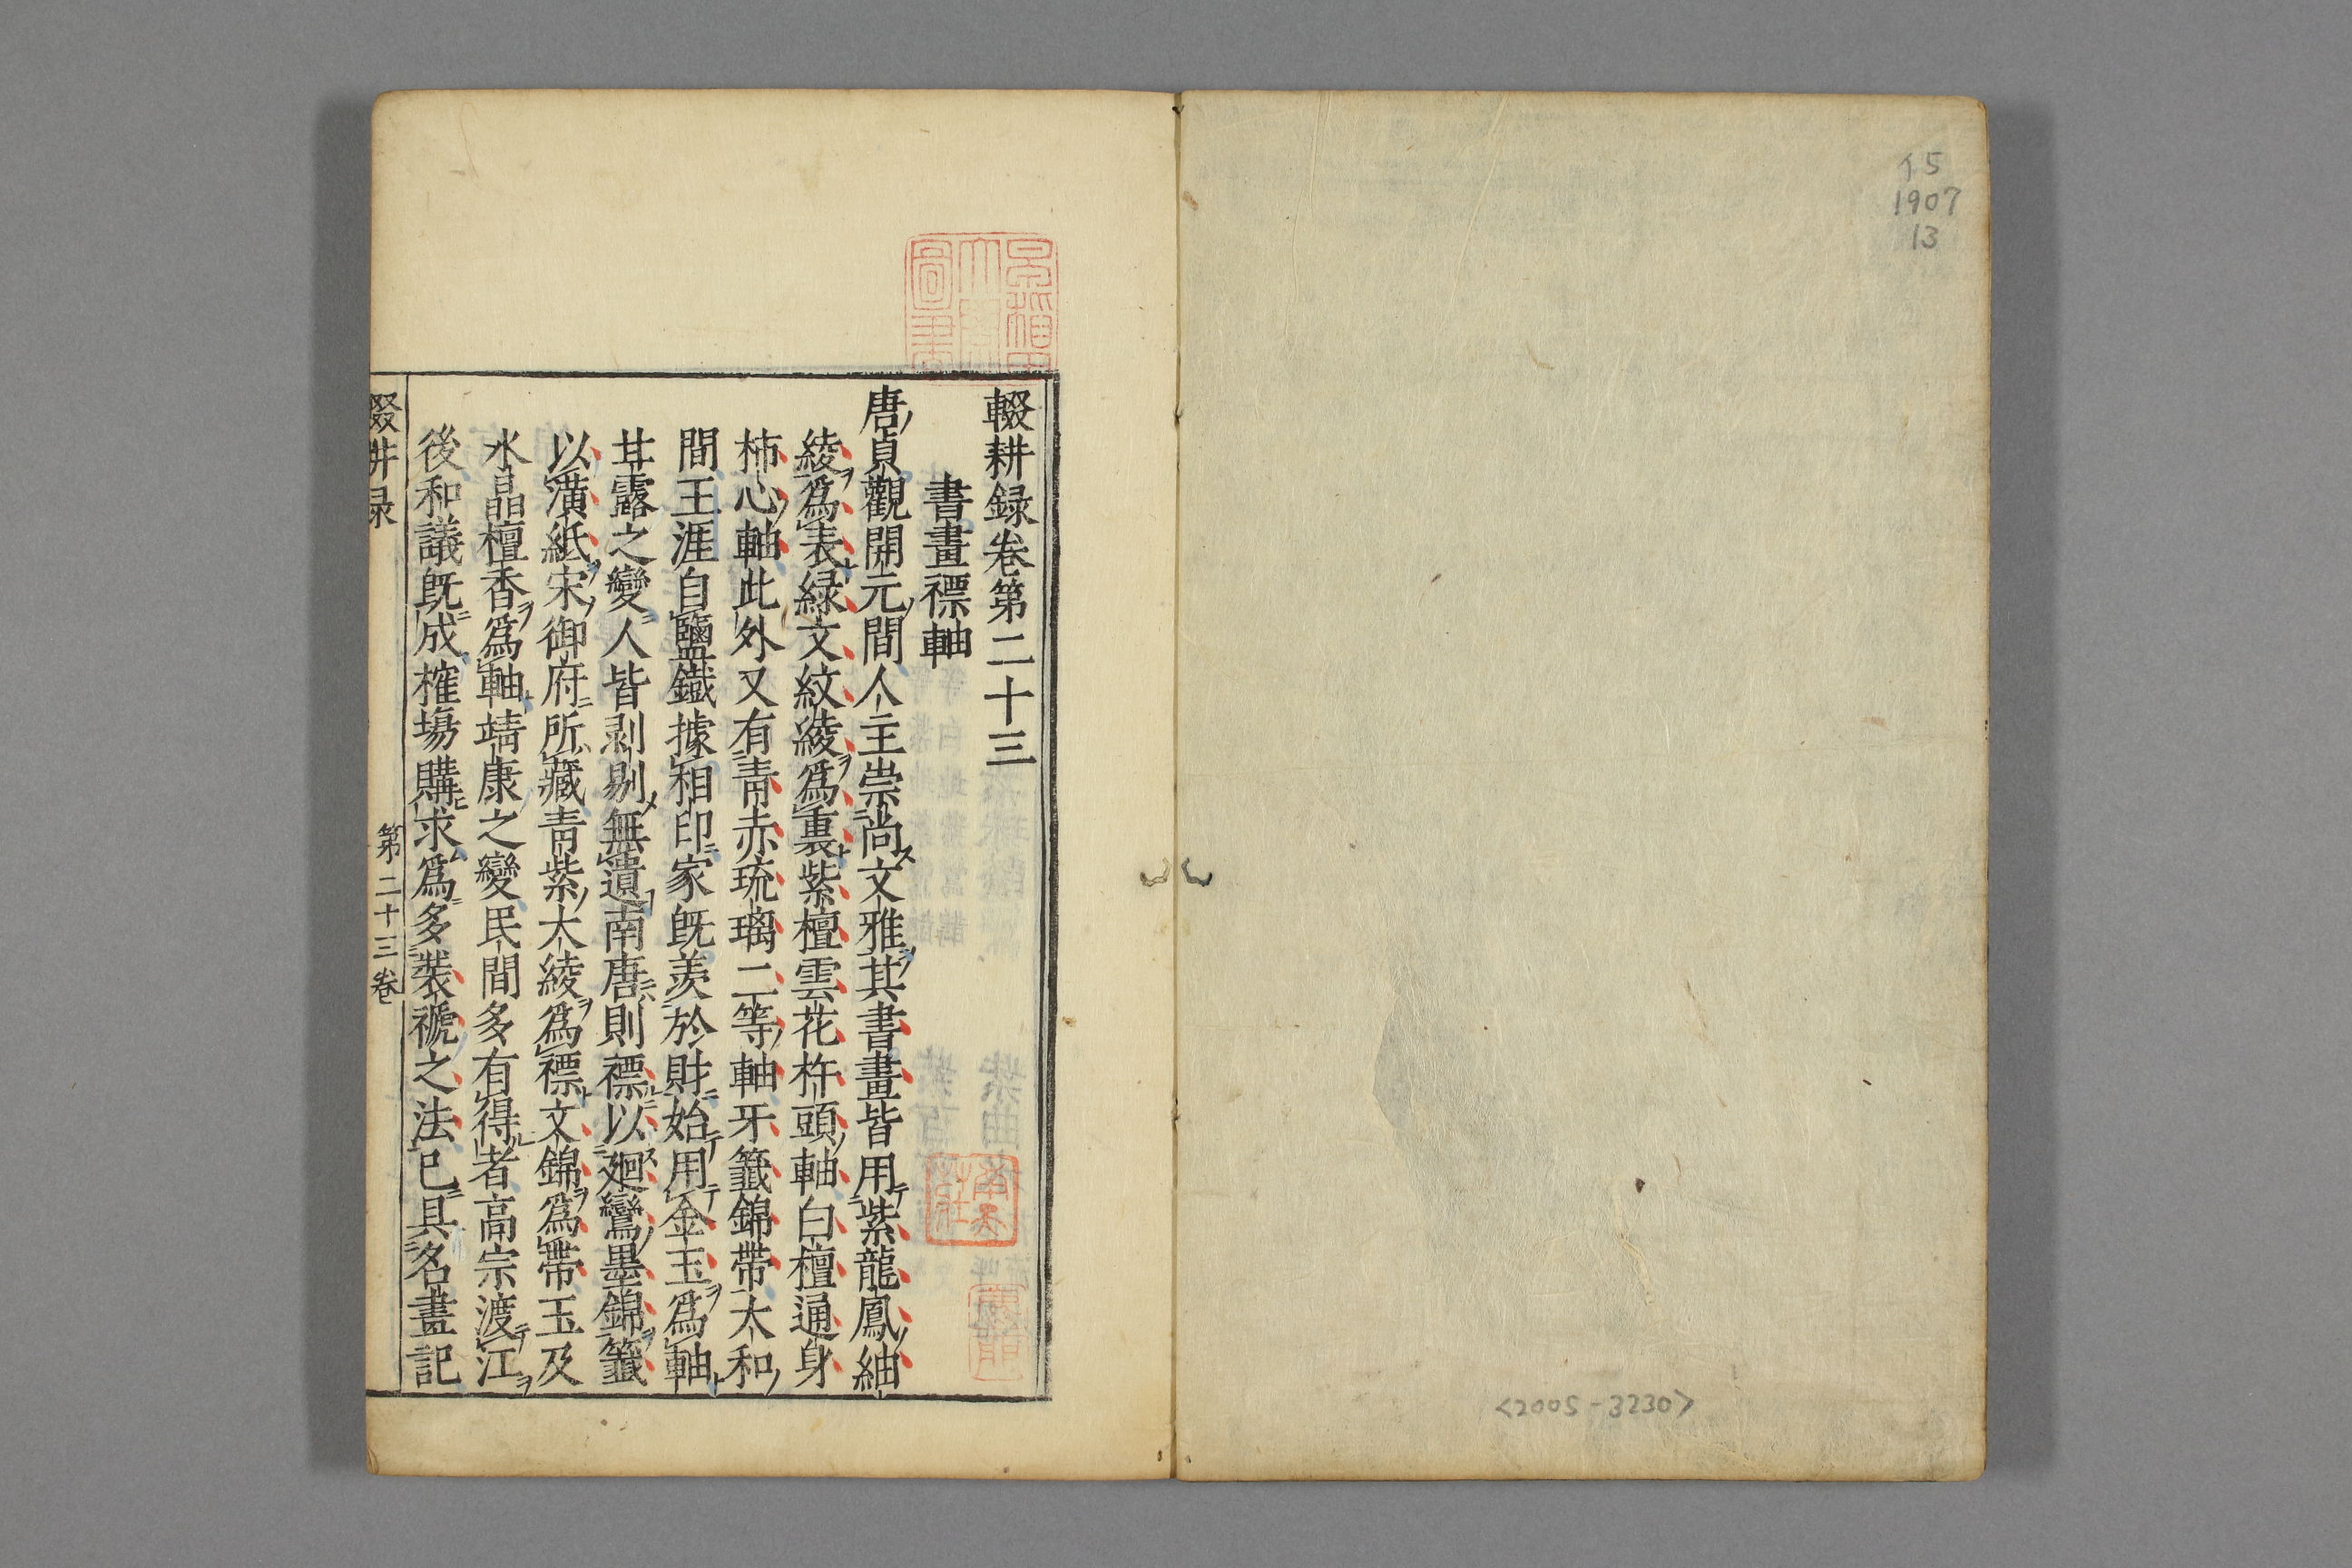 イ5
1907
13
<2005-3230>
輟耕録卷第二十三
書畫褾軸
唐貞觀開元間人主崇尚文雅其書畫皆用紫龍鳳紬
綾爲表緑文紋綾爲裏紫檀雲花杵頭軸白檀通身
柿心軸此外又有青赤琉璃二等軸牙籤錦帶大和
間王涯自鹽鐵據相印家既羨於財始用金玉爲軸
甘露之變人皆剥剔無遺南唐則褾以廻鸞墨錦籤
以潢紙宋御府所藏青紫大綾爲褾文錦爲帶玉及
水晶檀香爲軸靖康之變民間多有得者高宗渡江
後和議既成榷場購求爲多裝褫之法已具名畫記
輟耕録
第二十三卷